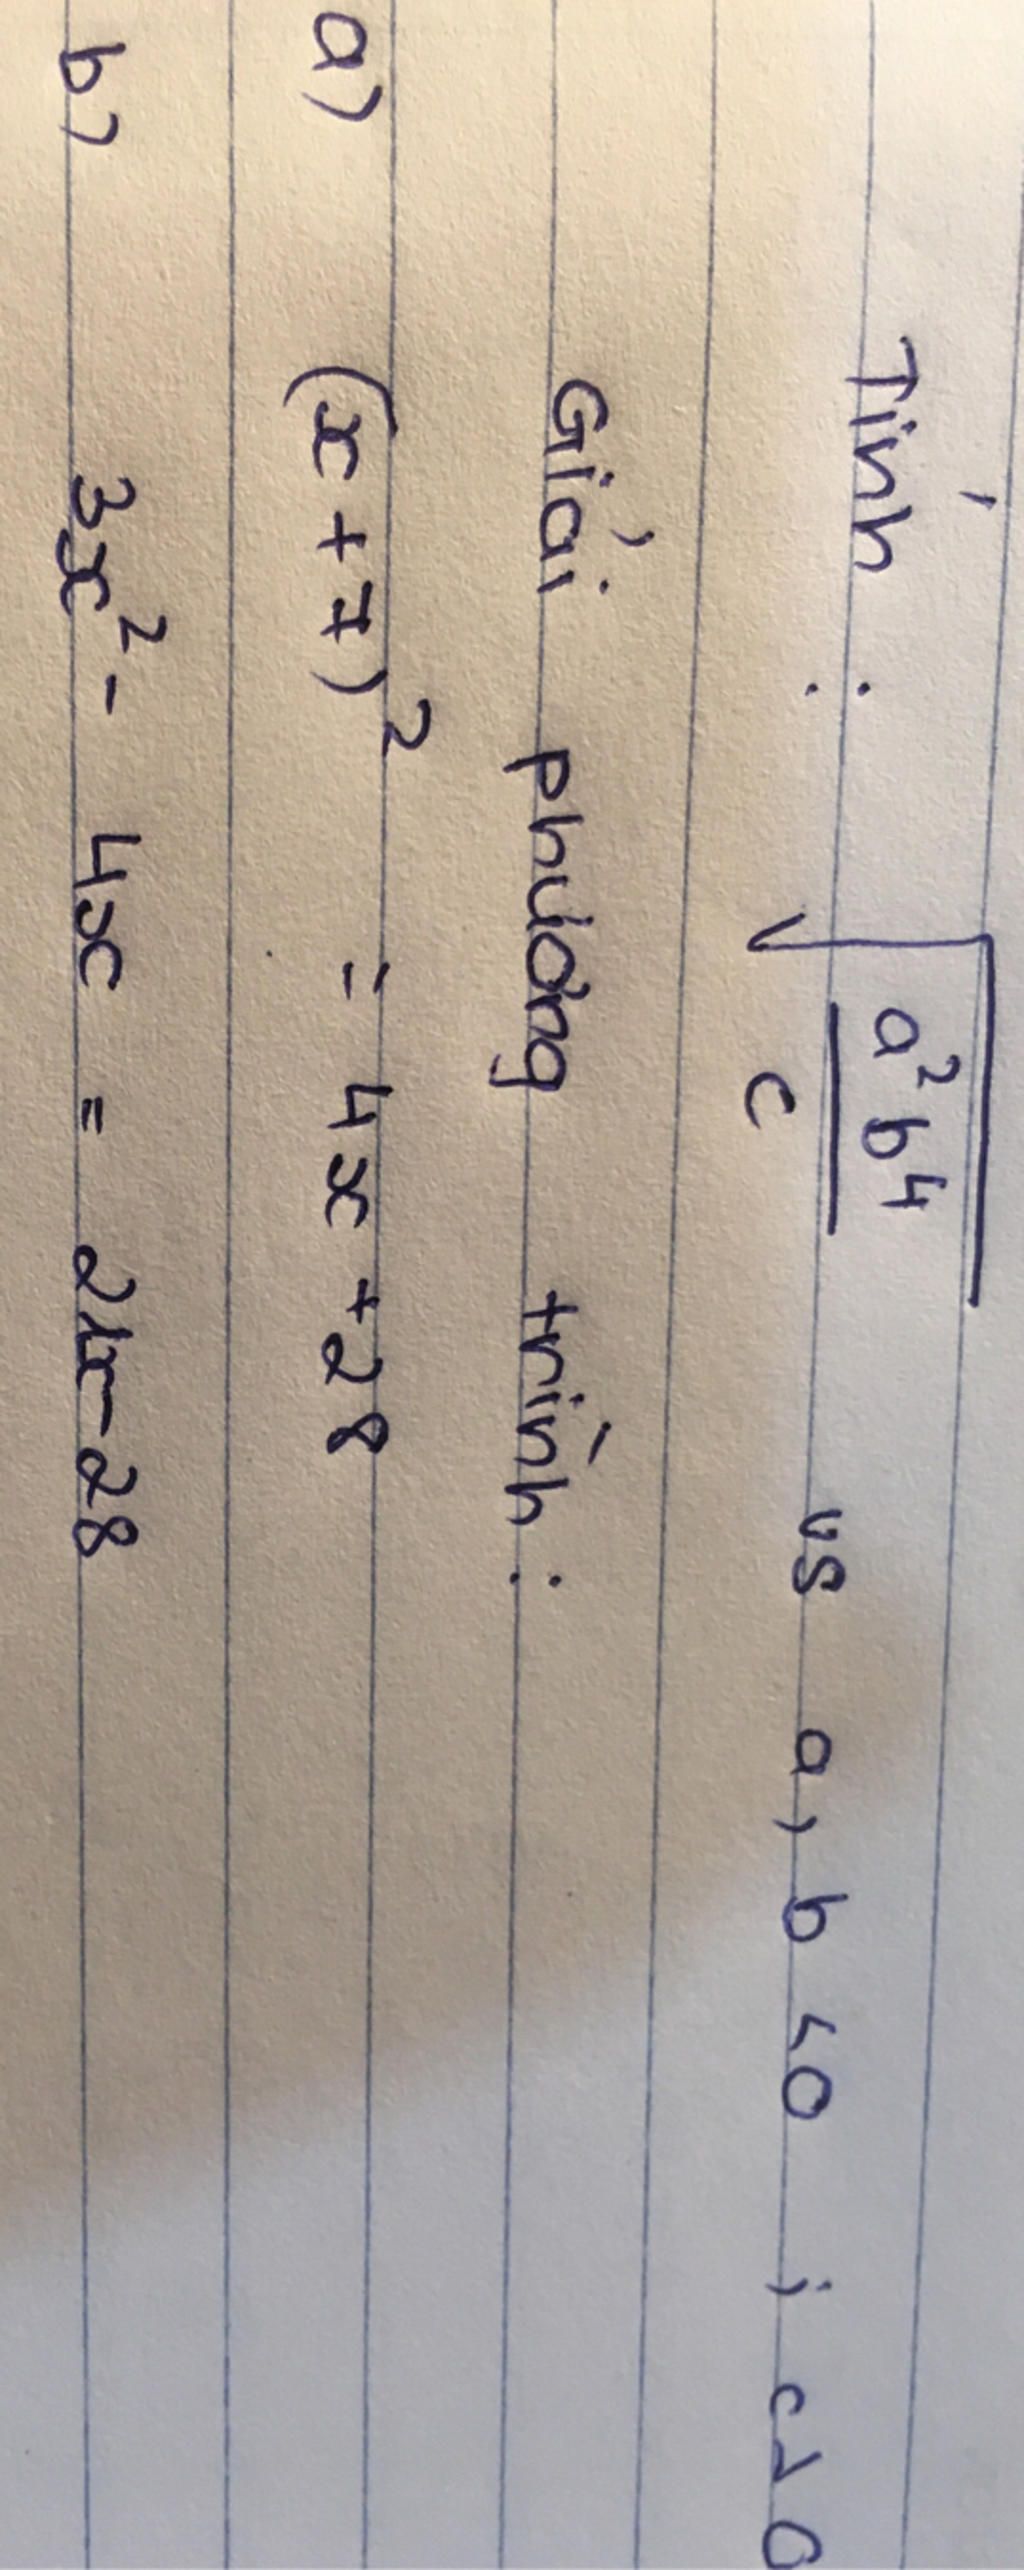 Tính : √(a²b⁴/c) vs a, b < 0 ; c > 0
Giải phương trình :
a) (x + 7)² = 4x + 28
b) 3x² - 4x = 21x - 28